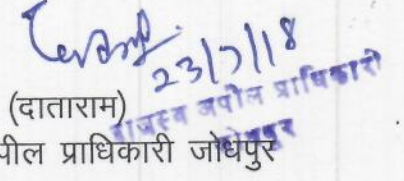 23/7/18
(दाताराम)
राजस्व अपील प्राधिकारी
जोधपुर
पील प्राधिकारी जोधपुर